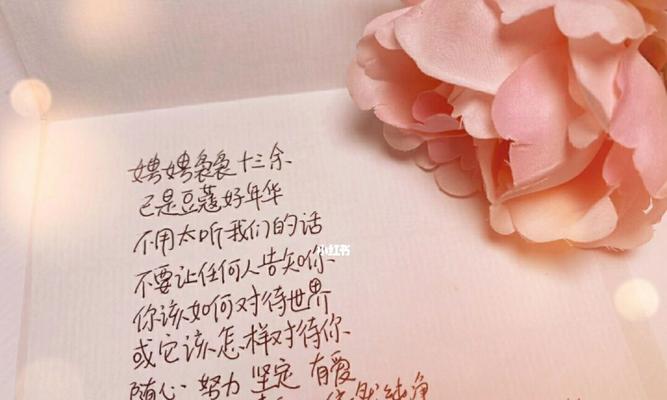 娉娉袅袅十三余
已是豆蔻好年华
不用太听我们的话
小红书
不要让任何人告知你
你该如何对待世界
或它该怎样对待你
随心 努力 坚定 有爱
依然纯净